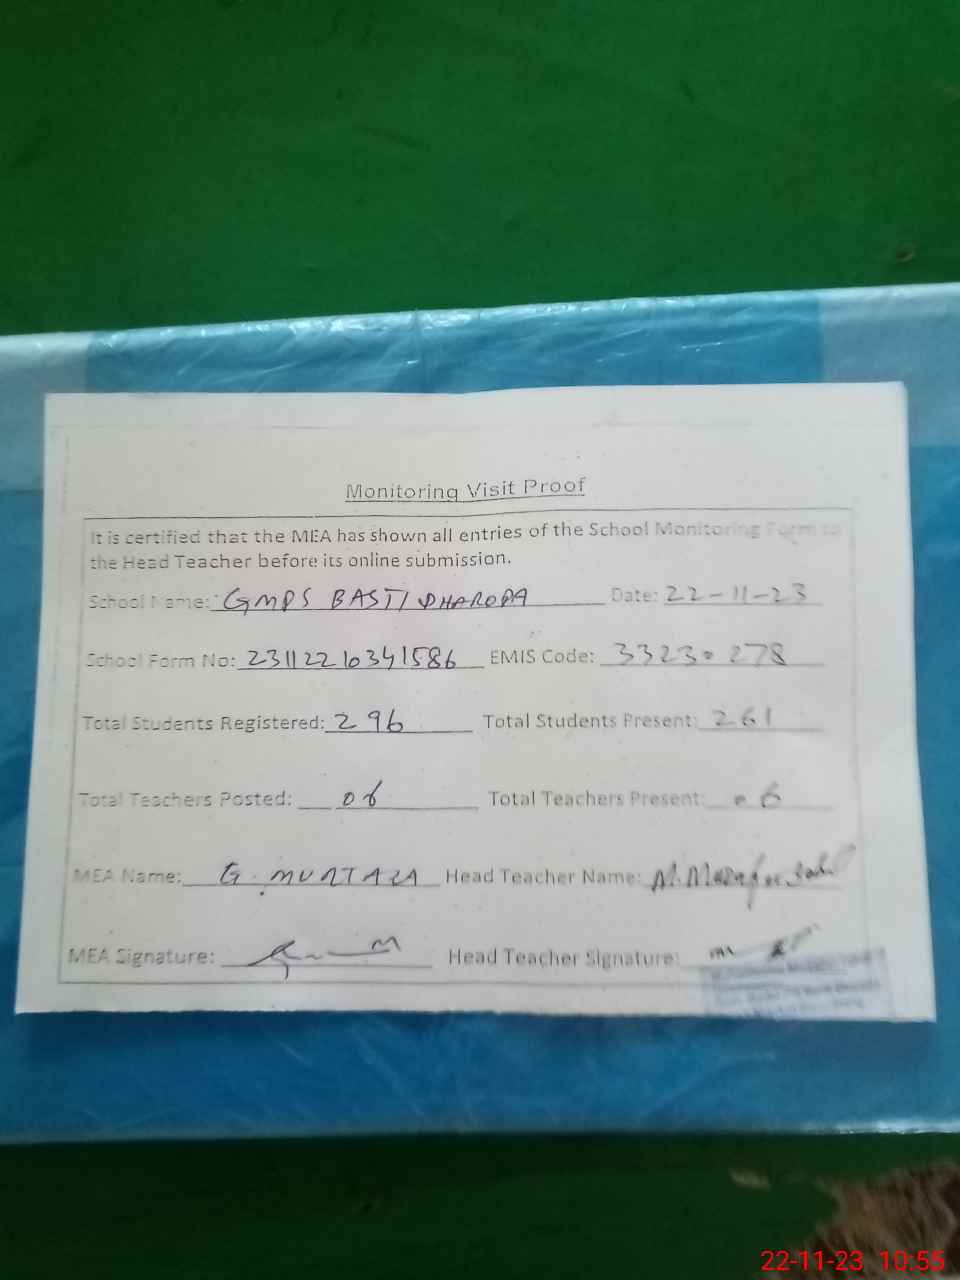 Monitoring Visit Proof
It is certified that the MEA has shown all entries of the School Monitoring Form to
the Head Teacher before its online submission.
School Name: GMPS BASTI DHAROPA Date: 22-11-23
School Form No: 23112210341586 EMIS Code: 33230278
Total Students Registered: 296 Total Students Present: 261
Total Teachers Posted: 06 Total Teachers Present: 06
MEA Name: G. MURTAZA Head Teacher Name: M.
MEA Signature: Head Teacher Signature:
22-11-23 10:55